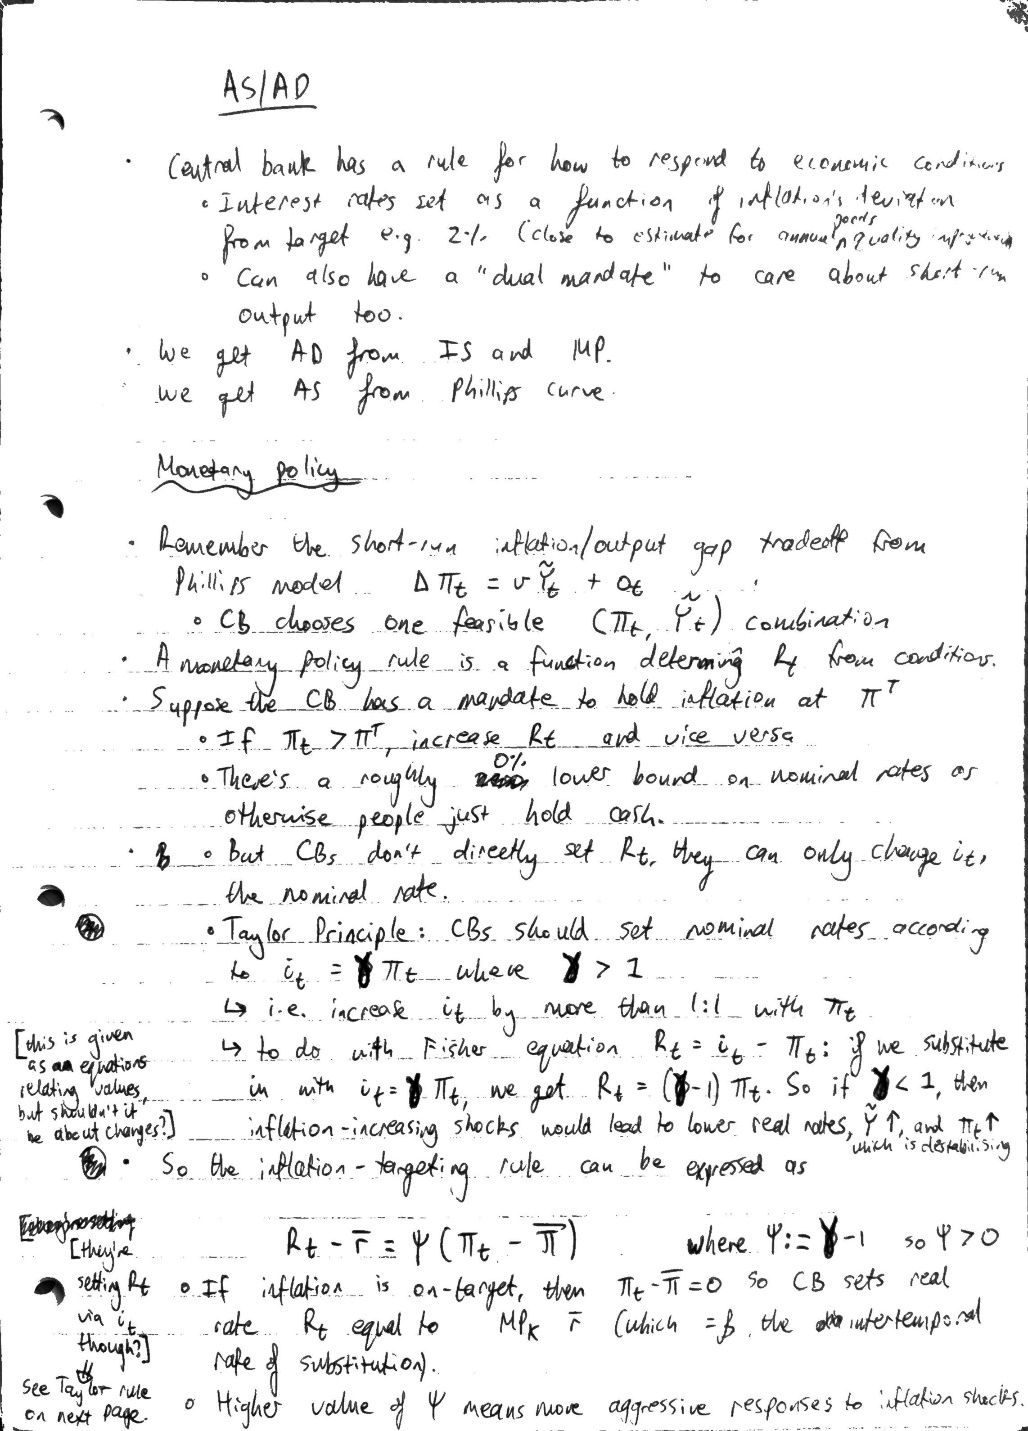 AS/AD
• Central bank has a rule for how to respond to economic conditions
◦ Interest rates set as a function of inflation's deviation
goods
from target e.g. 2% (close to estimate for annual ^ quality improvement
◦ Can also have a "dual mandate" to care about short-run
output too.
• We get AD from IS and MP.
We get AS from Phillips curve.
Monetary policy
• Remember the short-run inflation/output gap tradeoff from
Phillips model Δπt = vỸt + ot
◦ CB chooses one feasible (πt, Ỹt) combination
• A monetary policy rule is a function determing Rt from conditions.
• Suppose the CB has a mandate to hold inflation at π^T
◦ If πt > π^T, increase Rt and vice versa
◦ There's a roughly 0% lower bound on nominal rates as
otherwise people just hold cash.
• ◦ But CBs don't directly set Rt, they can only change it,
the nominal rate.
◦ Taylor Principle: CBs should set nominal rates according
to it = γπt where γ > 1
↳ i.e. increase it by more than 1:1 with πt
↳ to do with Fisher equation Rt = it - πt: if we substitute
in with it = γπt, we get Rt = (γ-1)πt. So if γ < 1, then
inflation-increasing shocks would lead to lower real rates, Ỹ↑, and πt↑
which is destabilising
[this is given
as an equations
relating values,
but shouldn't it
be about changes?]
• So the inflation-targeting rule can be expressed as
Rt - r̄ = Ψ(πt - π̄) where Ψ := γ-1 so Ψ > 0
[they're
setting Rt
via it
though?]
⇓
See Taylor rule
on next page.
◦ If inflation is on-target, then πt - π̄ = 0 so CB sets real
rate Rt equal to MPK r̄ (which = β, the intertemporal
rate of substitution).
◦ Higher value of Ψ means more aggressive responses to inflation shocks.